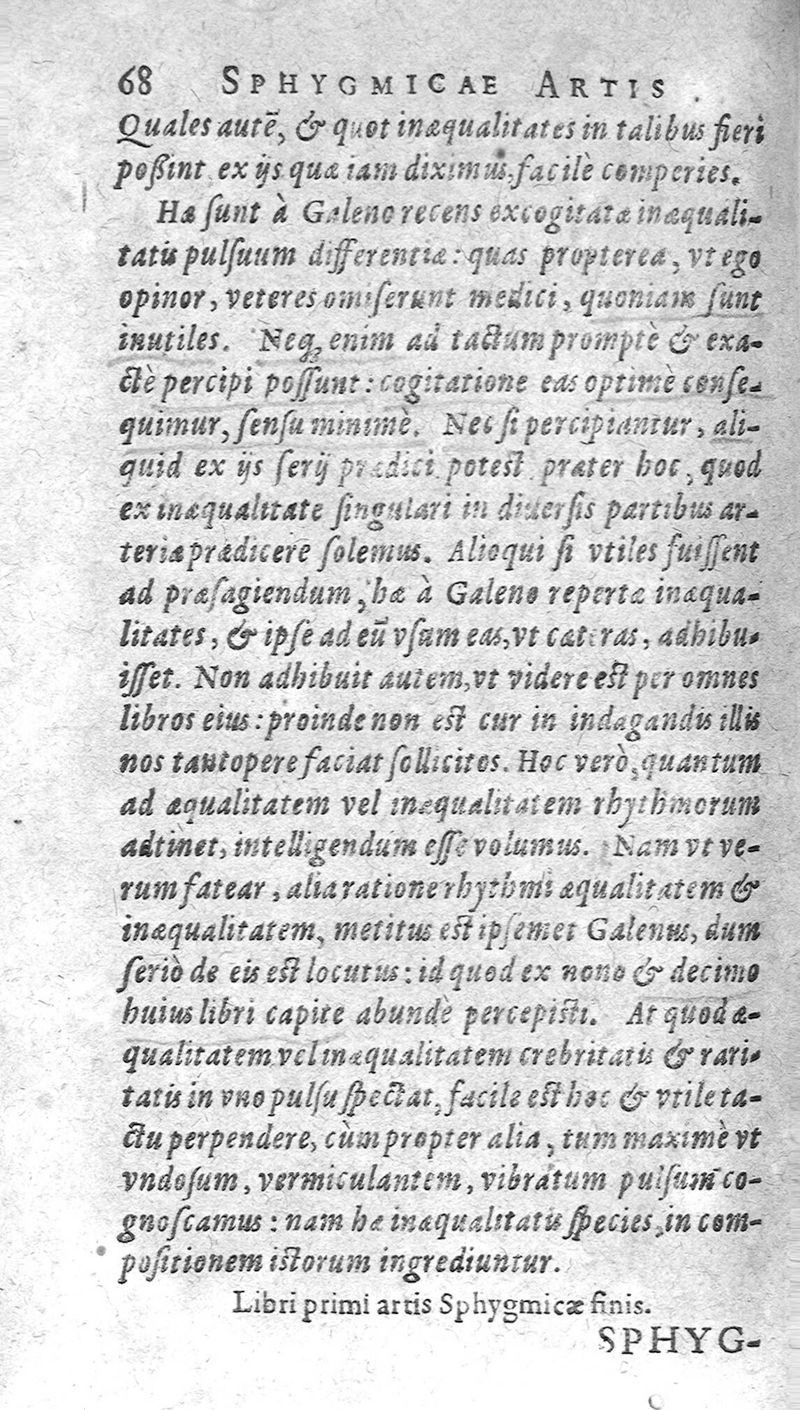 68 SPHYGMICAE ARTIS
Quales autē, & quot inæqualitates in talibus fieri
poßint ex ijs quæ iam diximus, facilè comperies.
Hæ ſunt à Galeno recens excogitatæ inæquali-
tatis pulſuum differentiæ: quas propterea, vt ego
opinor, veteres omiſerunt medici, quoniam ſunt
inutiles. Neq; enim ad tactum promptè & exa-
ctè percipi poſſunt: cogitatione eas optimè conſe-
quimur, ſenſu minimè. Nec ſi percipiantur, ali-
quid ex ijs ſerij prædici poteſt præter hoc, quod
ex inæqualitate ſingulari in diuerſis partibus ar-
teriæ prædicere ſolemus. Alioqui ſi vtiles fuiſſent
ad præſagiendum, hæ à Galeno repertæ inæqua-
litates, & ipſe ad eū vſum eas, vt cæteras, adhibu-
iſſet. Non adhibuit autem, vt videre eſt per omnes
libros eius: proinde non eſt cur in indagandis illis
nos tantopere faciat ſollicitos. Hoc verò, quantum
ad æqualitatem vel inæqualitatem rhythmorum
adtinet, intelligendum eſſe volumus. Nam vt ve-
rum fatear, alia ratione rhythmi æqualitatem &
inæqualitatem, metitus eſt ipſemet Galenus, dum
ſeriò de eis eſt locutus: id quod ex nono & decimo
huius libri capite abundè percepiſti. At quod æ-
qualitatem vel inæqualitatem crebritatis & rari-
tatis in vno pulſu ſpectat, facile eſt hoc & vtile ta-
ctu perpendere, cùm propter alia, tum maximè vt
vndoſum, vermiculantem, vibratum pulſum co-
gnoſcamus: nam hæ inæqualitatis ſpecies, in com-
poſitionem iſtorum ingrediuntur.
Libri primi artis Sphygmicæ finis.
SPHYG-